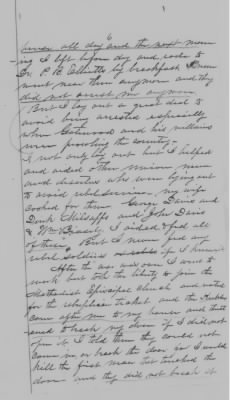 6
all day and the next morn
ing I left before day and rode to
Dr. P. B. Elliotts by breakfast I never
went near them anymore and they
did not arrest me anymore
But I lay out a great deal to
avoid being arrested especially
when Gatewood and his villains
were prowling the country.
I not only lay out but I helped
and aided other union men
and deserters who were lying out
to avoid rebel service. my wife
cooked for them George Davis and
Dink Millsaps and John Davis
& Wm I aided & fed all
of these. But I never fed any
rebel soldiers if I knew it
After the war was over I went to
work but took the liberty to join the
Methodist Episcopal Church and voted
for the republican ticket and the Kuklux
came after me to my house and threat
ened to break my door if I did not
open it I told them they could not
come in or break the door or I would
kill the first man that touched the
door and they did not break it